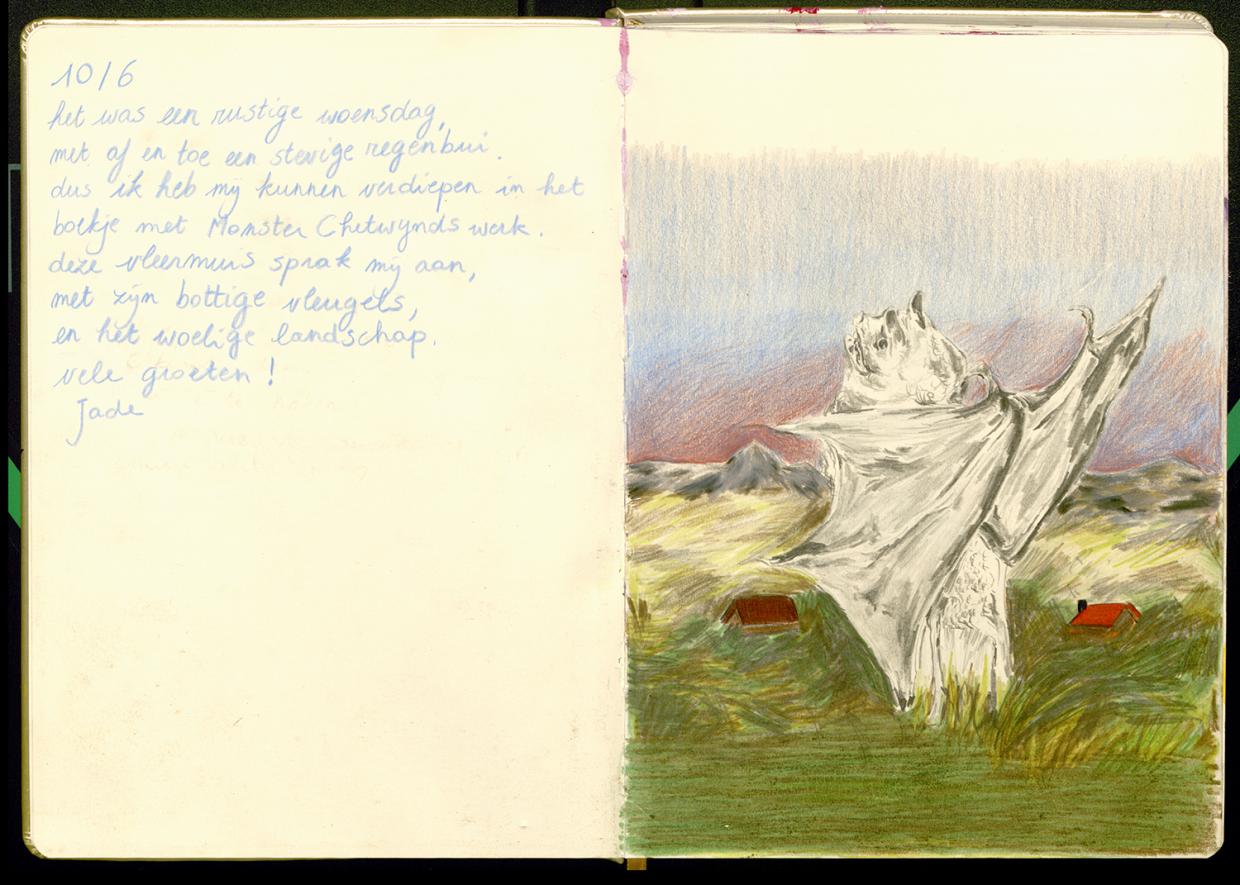 10/6
het was een rustige woensdag,
met af en toe een stevige regenbui.
dus ik heb mij kunnen verdiepen in het
boekje met Monster Chetwynds werk.
deze vleermuis sprak mij aan,
met zijn bottige vleugels,
en het woelige landschap.
vele groeten!
Jade